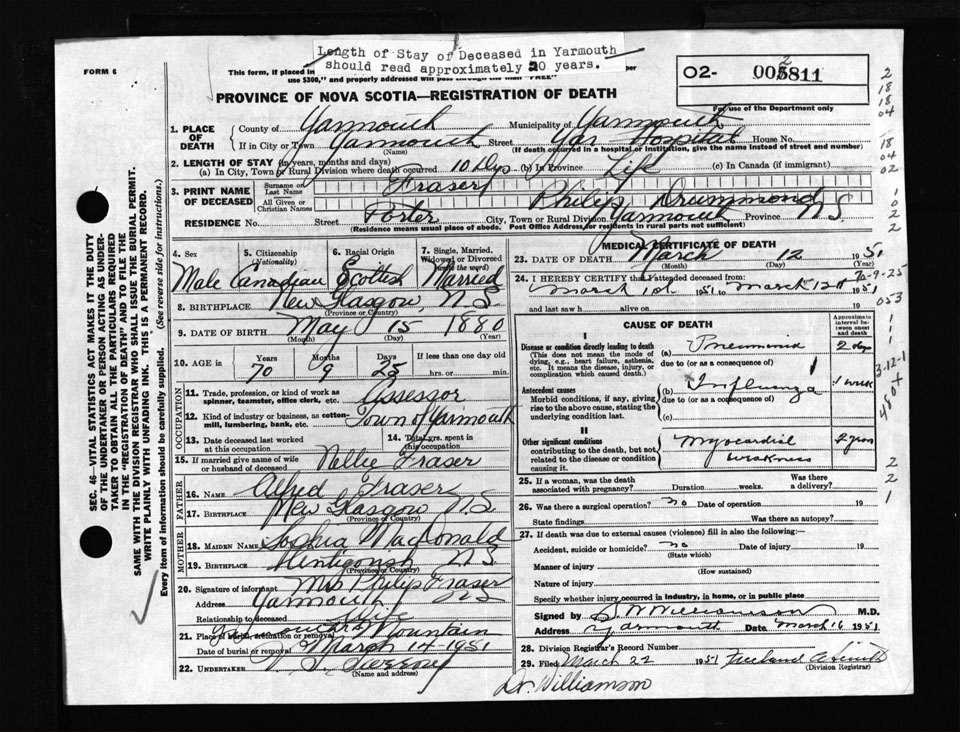 Length of Stay of Deceased in Yarmouth
should read approximately 20 years.
FORM 6
This form, if placed in
per
use $300," and properly addressed will pass through the mail "FREE"
PROVINCE OF NOVA SCOTIA—REGISTRATION OF DEATH
02- 002811
For use of the Department only
1. PLACE OF DEATH
County of Yarmouth Municipality of Yarmouth
If in City or Town Yarmouth Street Yar Hospital House No.
(Name) (If death occurred in a hospital or institution, give the name instead of street and number)
2. LENGTH OF STAY (in years, months and days)
(a) In City, Town or Rural Division where death occurred 10 Dys (b) In Province Life (c) In Canada (if immigrant)
3. PRINT NAME OF DECEASED
Surname or Last Name Fraser
All Given or Christian Names Philip Drummond
RESIDENCE No. Street Porter City, Town or Rural Division Yarmouth Province N.S.
(Residence means usual place of abode. Post Office Address for residents in rural parts not usual)
4. Sex Male
5. Citizenship (Nationality) Canadian
6. Racial Origin Scottish
7. Single, Married, Widowed or Divorced (write the word) Married
8. BIRTHPLACE New Glasgow, N.S.
(Province or Country)
9. DATE OF BIRTH May 15 1880
(Month) (Day) (Year)
10. AGE in Years 70 Months 9 Days 25 If less than one day old hrs. or min.
OCCUPATION
11. Trade, profession, or kind of work as spinner, teamster, office clerk, etc. Assessor
12. Kind of industry or business, as cotton-mill, lumbering, bank, etc. Town of Yarmouth
13. Date deceased last worked at this occupation
14. Total yrs. spent in this occupation
15. If married give name of wife or husband of deceased Nellie Fraser
FATHER
16. NAME Alfred Fraser
17. BIRTHPLACE New Glasgow N.S.
(Province or Country)
MOTHER
18. MAIDEN NAME Sophia MacDonald
19. BIRTHPLACE Antigonish N.S.
(Province or Country)
20. Signature of informant Mrs Philip Fraser
Address Yarmouth NS
Relationship to deceased
21. Place of burial, cremation or removal Mountain
Date of burial or removal March 14-1951
22. UNDERTAKER
(Name and address)
MEDICAL CERTIFICATE OF DEATH
23. DATE OF DEATH March 12 1951
(Month) (Day)
24. I HEREBY CERTIFY that I attended deceased from:
March 1st 1951 to March 12th 1951
and last saw h alive on 19
CAUSE OF DEATH
Approximate interval between onset and death
I
Disease or condition directly leading to death
(This does not mean the mode of dying, e.g., heart failure, asthenia, etc. It means the disease, injury, or complication which caused death.)
(a) Pneumonia 2 days
due to (or as a consequence of)
Antecedent causes
Morbid conditions, if any, giving rise to the above cause, stating the underlying condition last.
(b) Influenza 1 week
due to (or as a consequence of)
(c)
II
Other significant conditions contributing to the death, but not related to the disease or condition causing it.
Myocardial weakness 2 years
25. If a woman, was the death associated with pregnancy? Duration weeks. Was there a delivery?
26. Was there a surgical operation? no Date of operation 19
State findings Was there an autopsy?
27. If death was due to external causes (violence) fill in also the following:—
Accident, suicide or homicide? no Date of injury 19
(State which)
Manner of injury
(How sustained)
Nature of injury
Specify whether injury occurred in industry, in home, or in public place
Signed by S W Williamson M.D.
Address Yarmouth Date March 16 1951
28. Division Registrar's Record Number
29. Filed March 22 1951 Freeland A Smith
(Division Registrar)
Dr. Williamson
SEC. 46—VITAL STATISTICS ACT MAKES IT THE DUTY
OF THE UNDERTAKER OR PERSON ACTING AS UNDER-
TAKER TO OBTAIN ALL THE PARTICULARS REQUIRED
IN THE "REGISTRATION OF DEATH" AND TO FILE THE
SAME WITH THE DIVISION REGISTRAR WHO SHALL ISSUE THE BURIAL PERMIT.
WRITE PLAINLY WITH UNFADING INK. THIS IS A PERMANENT RECORD.
Every item of information should be carefully supplied. (See reverse side for instructions.)
2
18
18
04
18
04
02
0
2
2
70-9-25
053
1
1
1
3-12-1
480+
2
2
1